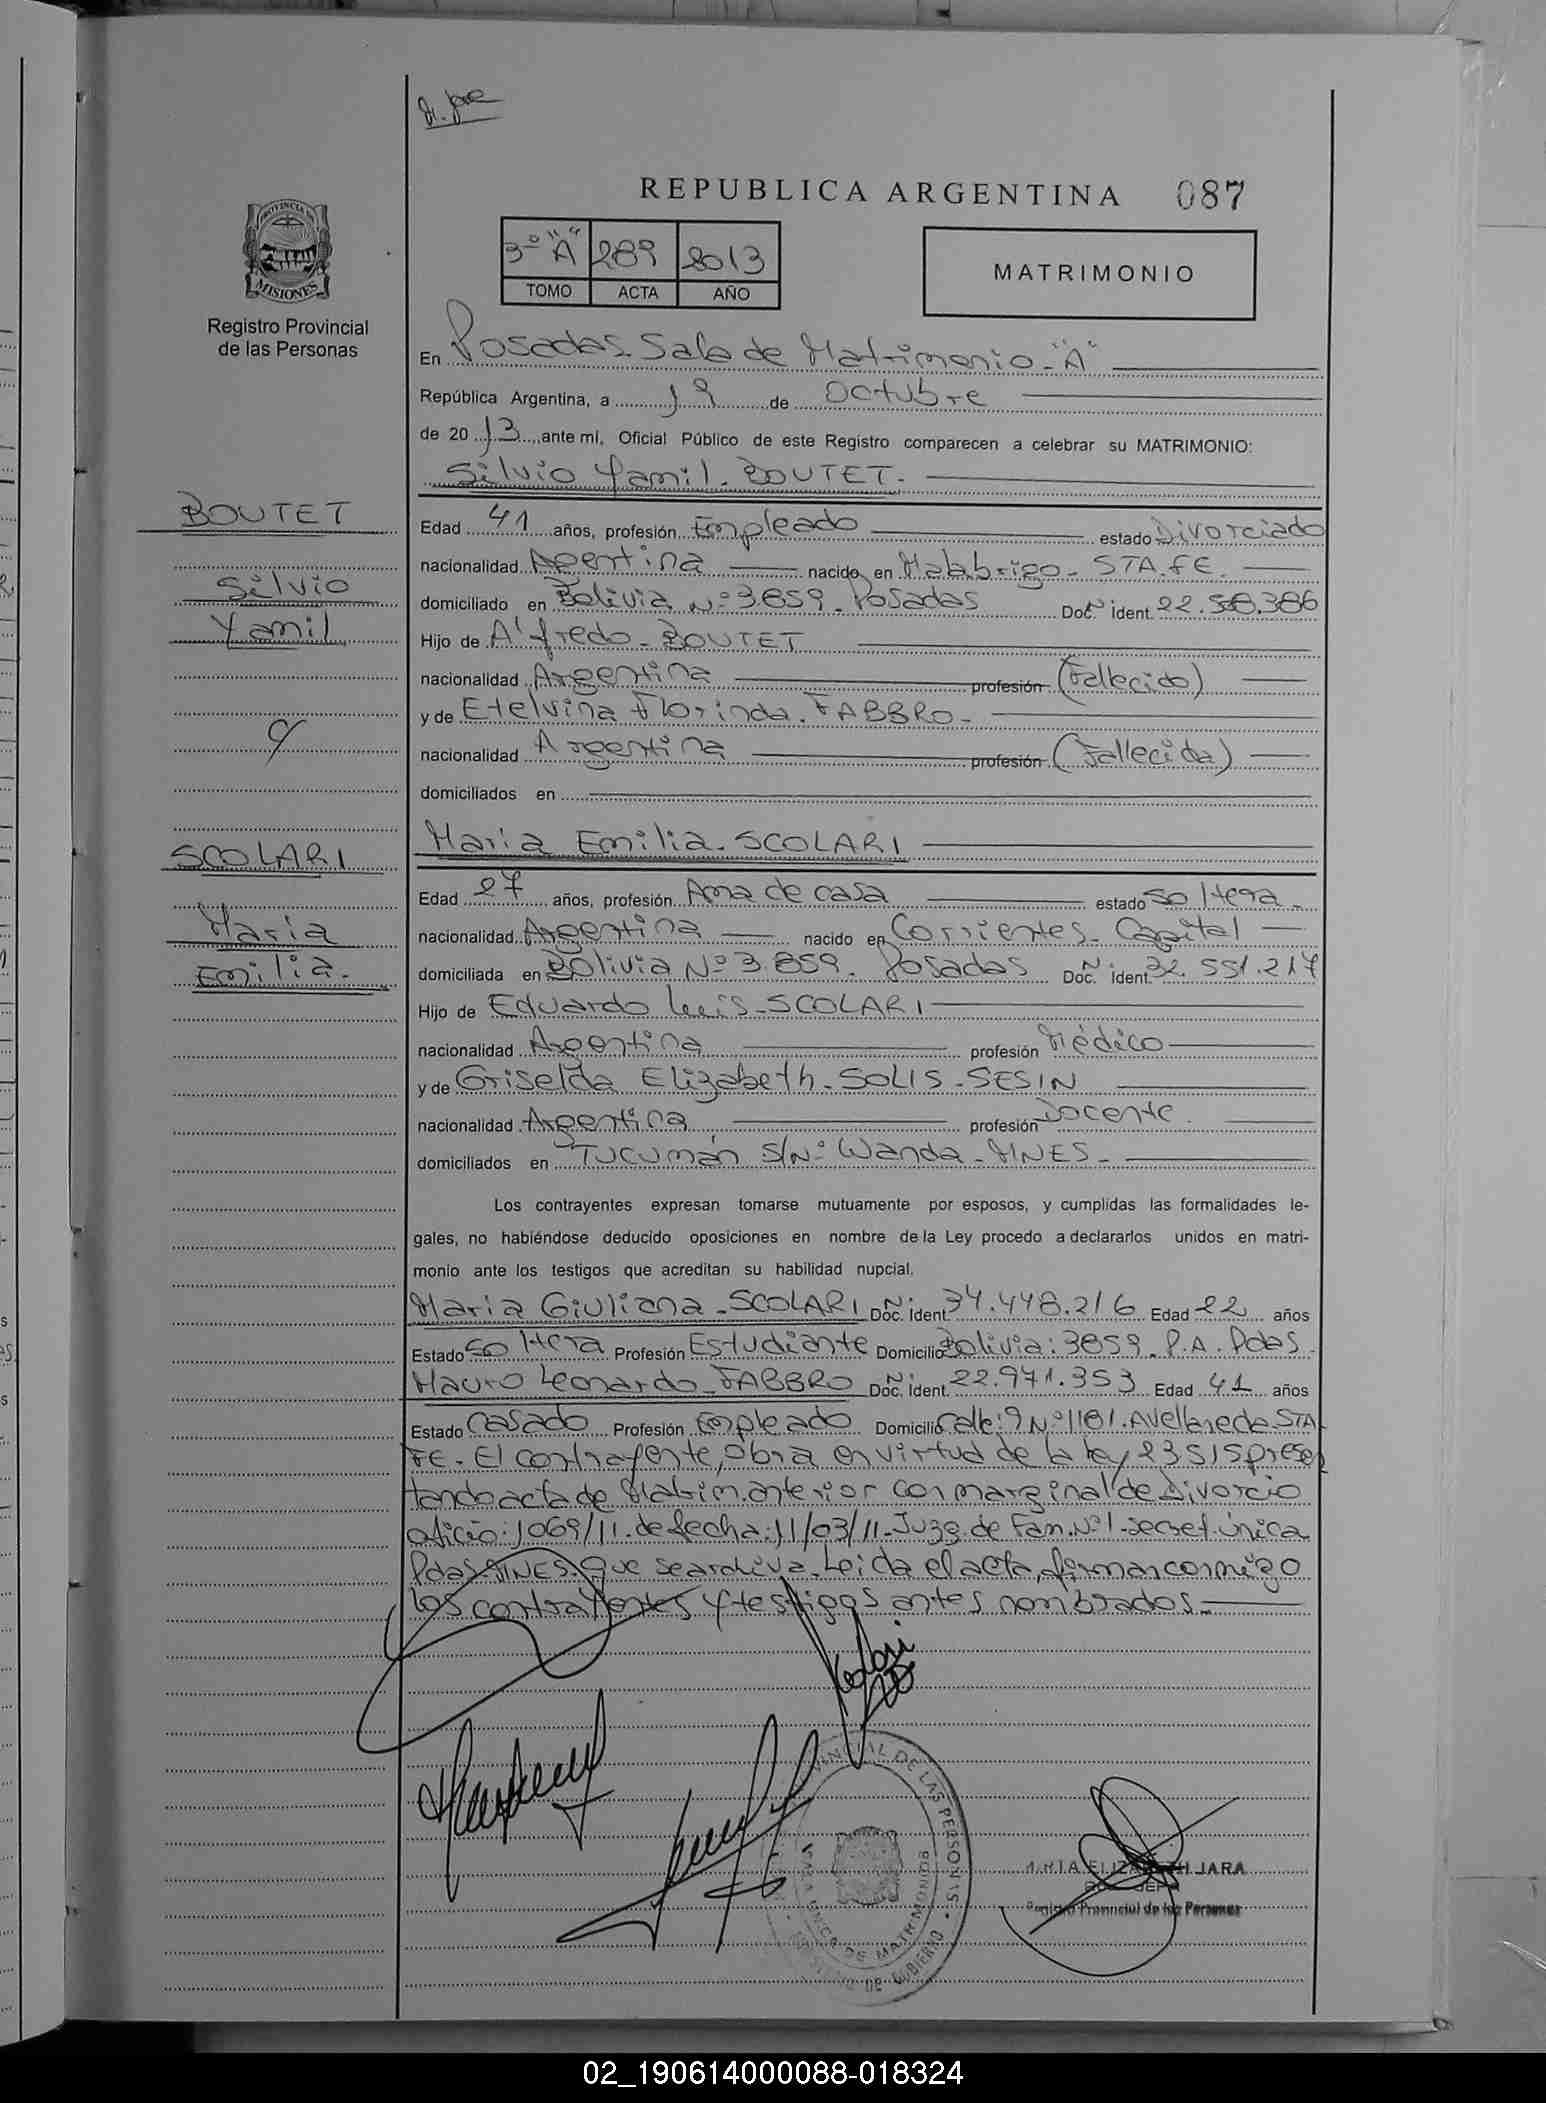 REPUBLICA ARGENTINA 087
3º "A" 289 2013
TOMO ACTA AÑO
MATRIMONIO
PROVINCIA DE
MISIONES
Registro Provincial
de las Personas
En Posadas. Sala de Matrimonio - "A"
República Argentina, a 19 de Octubre
de 2013, ante mí, Oficial Público de este Registro comparecen a celebrar su MATRIMONIO:
Silvio Yamil. BOUTET.
BOUTET
Silvio
Yamil
y
SCOLARI
Maria
Emilia.
Edad 41 años, profesión Empleado estado Divorciado
nacionalidad Agentina nacido en Malabrigo - STA. FE.
domiciliado en Bolivia Nº 3859. Posadas Doc. Nº ident. 22.508.386
Hijo de Alfredo - BOUTET
nacionalidad Argentina profesión (Fallecido)
y de Etelvina Florinda. FABBRO -
nacionalidad Argentina profesión (Fallecida)
domiciliados en
Maria Emilia. SCOLARI
Edad 27 años, profesión Ama de casa estado soltera -
nacionalidad Argentina nacido en Corrientes - Capital
domiciliada en Bolivia Nº 3.859. Posadas Doc. Nº ident. 32.551.217
Hijo de Eduardo Luis - SCOLARI
nacionalidad Argentina profesión Médico
y de Griselda Elizabeth - SOLIS - SESIN
nacionalidad Argentina profesión Docente.
domiciliados en Tucumán S/Nº Wanda - MNES -
Los contrayentes expresan tomarse mutuamente por esposos, y cumplidas las formalidades le-
gales, no habiéndose deducido oposiciones en nombre de la Ley procedo a declararlos unidos en matri-
monio ante los testigos que acreditan su habilidad nupcial.
Maria Giuliana - SCOLARI Doc. Nº Ident. 34.448.216 Edad 22 años
Estado soltera Profesión Estudiante Domicilio Bolivia: 3859. P.A. Pdas.
Mauro Leonardo - FABBRO Doc. Nº Ident. 22.971.353 Edad 41 años
Estado Casado Profesión Empleado Domicilio Calle: 9 Nº 1181. Avellaneda STA
FE - El contrayente, obra en virtud de la ley 23515 presen
tando acta de Matrim. anterior con marginal de Divorcio
oficio: 1069/11. de fecha: 11/03/11 - Juzg. de Fam. Nº 1 - secret. única
Pdas MNES. Que se archiva. Leida el acta, firman conmigo
los contrayentes y testigos antes nombrados. -
ELIZABETH JARA
Registro Provincial de las Personas
PROVINCIAL DE LAS PERSONAS
UNICA DE MATRIMONIOS
DE GOBIERNO
02_190614000088-018324